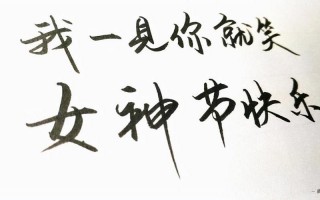 我一見你就笑
女神节快乐